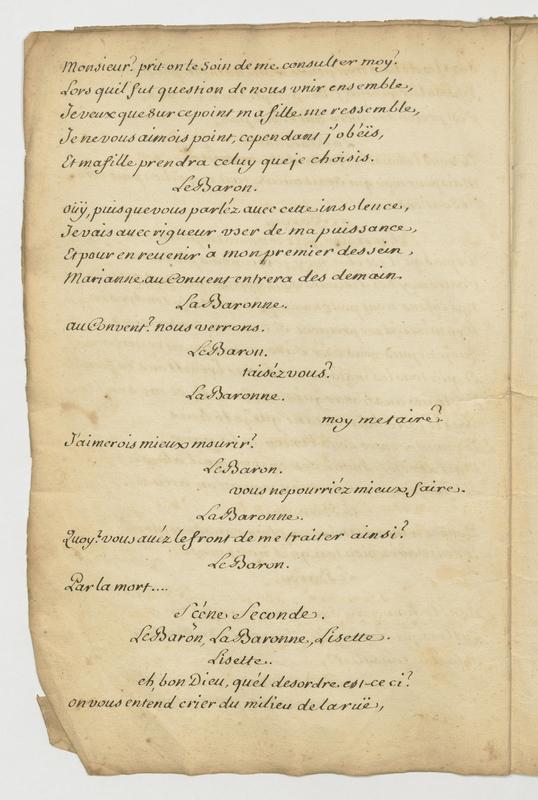 Monsieur? prit on le soin de me consulter moy?
Lors quil fut question de nous vnir ensemble,
Je veux que sur ce point ma fille me ressemble,
Je ne vous aimois point, cependant j'obéïs,
Et ma fille prendra celuy que je choisis.
Le Baron.
oüÿ, puisque vous parléz auec cette insolence,
Je vais auec rigueur vser de ma puissance,
Et pour en reuenir à mon premier dessein,
Marianne au Conuent entrera des demain.
La Baronne.
au Convent? nous verrons.
Le Baron.
taiséz vous?
La Baronne.
moy me taire?
J'aimerois mieux mourir?
Le Baron.
vous ne pourriéz mieux faire.
La Baronne.
Quoy? vous auéz le front de me traiter ainsi?
Le Baron.
Par la mort....
Scéne Seconde.
Le Baron, La Baronne, Lisette.
Lisette.
eh, bon Dieu, quél desordre est-ce ci?
on vous entend crier du milieu de la ruë,